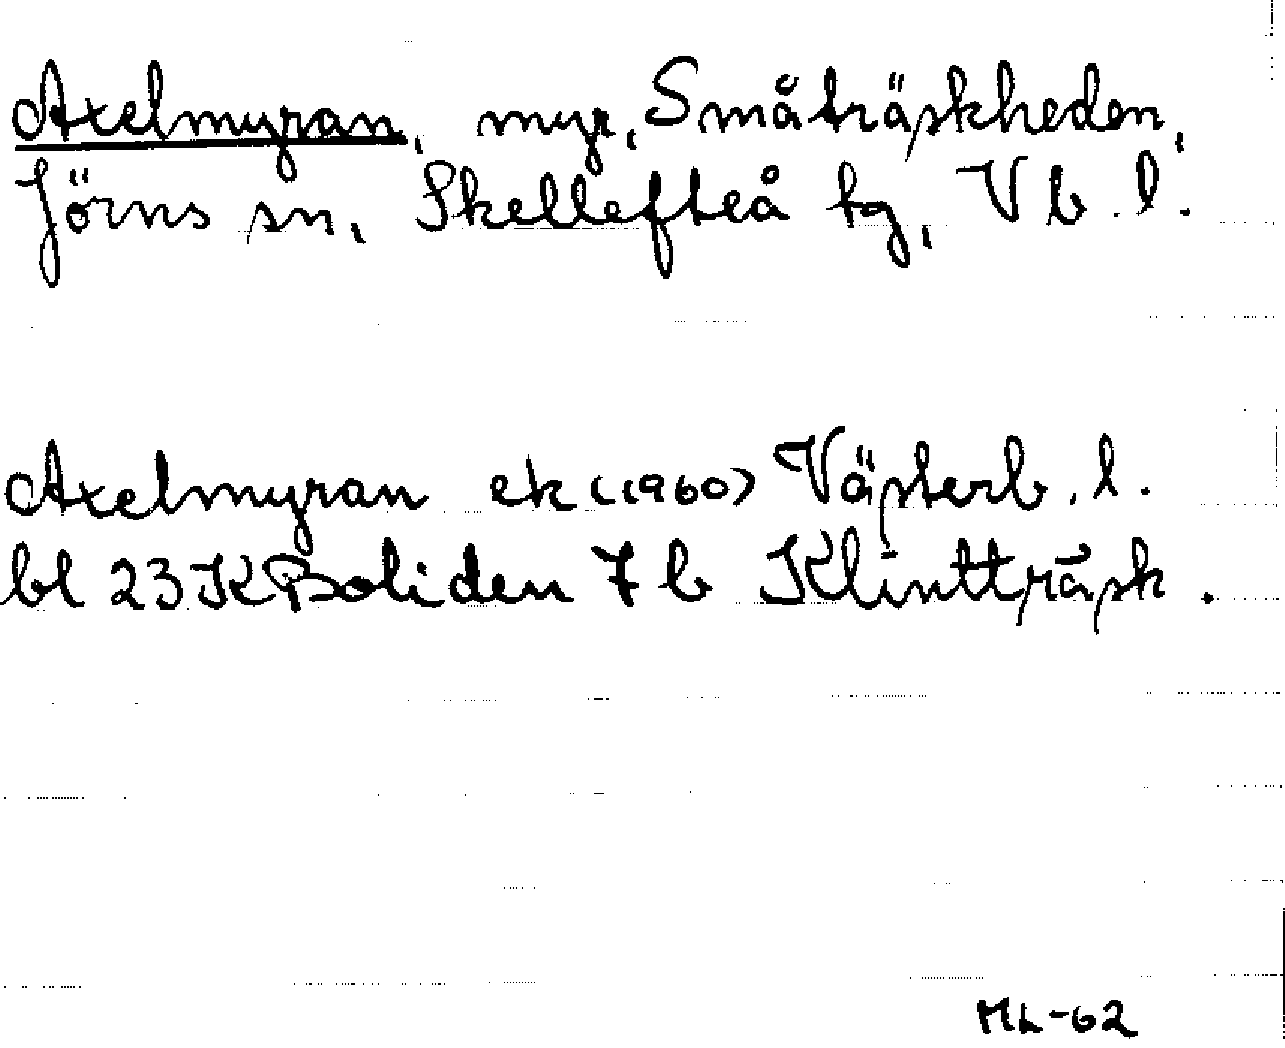 Axelmyran, myr, Småträskheden,
Jörns sn, Skellefteå tg, Vb. l.
Axelmyran ek (1960) Västerb. l.
bl 23 K Boliden 7 b Klintträsk.
ML-62